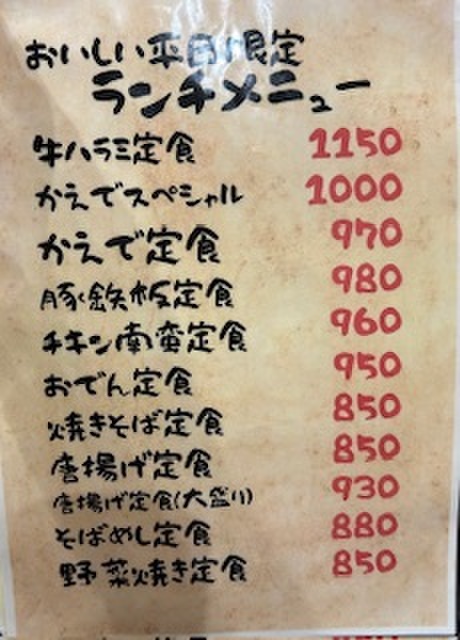 おいしい平日限定
ランチメニュー
牛ハラミ定食 1150
かえでスペシャル 1000
かえで定食 970
豚鉄板定食 980
チキン南蛮定食 960
おでん定食 950
焼きそば定食 850
唐揚げ定食 850
唐揚げ定食(大盛り) 930
そばめし定食 880
野菜焼き定食 850